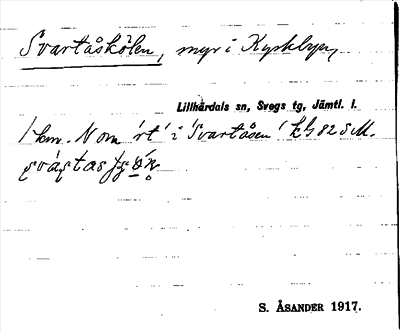 Svartåskölen, myr i Kyrkbyn,
Lillhärdals sn, Svegs tg, Jämtl. l.
1 km. N om 'rt' i 'Svartåsen' kbl 82 SM.
S. ÅSANDER 1917.